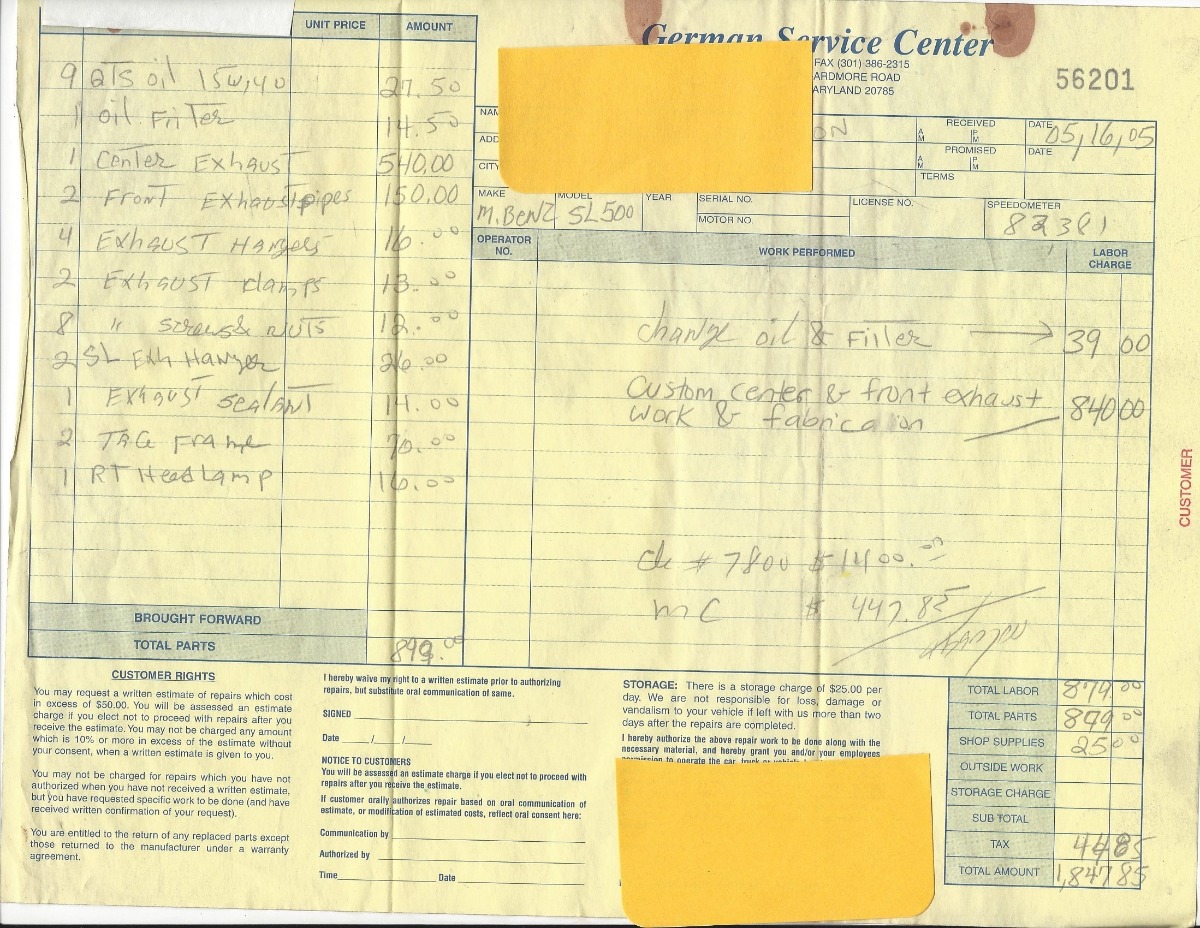 UNIT PRICE AMOUNT
9 QTS oil 15W,40 27.50
1 oil Filter 14.50
1 Center Exhaust 540.00
2 Front Exhaust pipes 150.00
4 Exhaust Hangers 16.00
2 Exhaust clamps 13.00
8 " screws & nuts 12.00
2 SL Exh Hanger 26.00
1 Exhaust sealant 14.00
2 TAG Frame 70.00
1 RT Headlamp 16.00
BROUGHT FORWARD
TOTAL PARTS 899.00
German Service Center
FAX (301) 386-2315
ARDMORE ROAD
ARYLAND 20785
56201
NAM
ON
AM RECEIVED PM
DATE 05,16,05
ADD
AM PROMISED PM
DATE
CITY
TERMS
MAKE M.BENZ
MODEL SL500
YEAR
SERIAL NO.
MOTOR NO.
LICENSE NO.
SPEEDOMETER 82381
OPERATOR NO.
WORK PERFORMED
LABOR CHARGE
change oil & Filter 39 00
Custom center & front exhaust
work & fabrication 840 00
ck # 7800 $1400.00
mc $ 447.85
CUSTOMER
CUSTOMER RIGHTS
You may request a written estimate of repairs which cost
in excess of $50.00. You will be assessed an estimate
charge if you elect not to proceed with repairs after you
receive the estimate. You may not be charged any amount
which is 10% or more in excess of the estimate without
your consent, when a written estimate is given to you.
You may not be charged for repairs which you have not
authorized when you have not received a written estimate,
but you have requested specific work to be done (and have
received written confirmation of your request).
You are entitled to the return of any replaced parts except
those returned to the manufacturer under a warranty
agreement.
I hereby waive my right to a written estimate prior to authorizing
repairs, but substitute oral communication of same.
SIGNED
Date ____/____/____
NOTICE TO CUSTOMERS
You will be assessed an estimate charge if you elect not to proceed with
repairs after you receive the estimate.
If customer orally authorizes repair based on oral communication of
estimate, or modification of estimated costs, reflect oral consent here:
Communication by
Authorized by
Time Date
STORAGE: There is a storage charge of $25.00 per
day. We are not responsible for loss, damage or
vandalism to your vehicle if left with us more than two
days after the repairs are completed.
I hereby authorize the above repair work to be done along with the
necessary material, and hereby grant you and/or your employees
permission to operate the car, truck or
TOTAL LABOR 879.00
TOTAL PARTS 899 00
SHOP SUPPLIES 25 00
OUTSIDE WORK
STORAGE CHARGE
SUB TOTAL
TAX 44 85
TOTAL AMOUNT 1,847 85